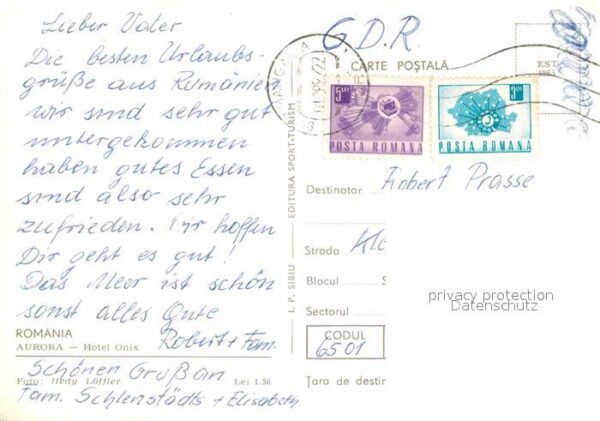 Lieber Vater
Die besten Urlaubs-
grüße aus Rumänien
wir sind sehr gut
untergekommen
haben gutes Essen
sind also sehr
zufrieden. Wir hoffen
Dir geht es gut!
Das Meer ist schön
sonst alles Gute
Robert + Fam.
ROMÂNIA
AURORA — Hotel Onix
Schönen Gruß an
Foto: Hedy Löffler
Lei 1.50
Fam. Schlenstädts + Elisabeth
I. P. SIBIU
EDITURA SPORT-TURISM
G.D.R.
CARTE POȘTALĂ
MANGALIA
EST.
5 LEI
POSTA ROMANA
3 LEI
POSTA ROMANA
Destinatar
Robert Prasse
Strada
Kle
Blocul
S
Sectorul
CODUL
6501
Țara de destin
privacy protection
Datenschutz